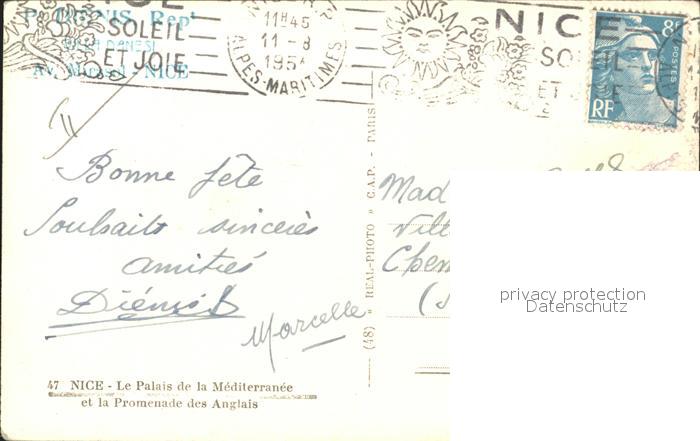 NICE
SOLEIL
ET JOIE
Av. - NICE
11H45
11-8
195
ALPES-MARITIMES
NICE
SO
ET
8F
POSTES
RF
Bonne fête
Souhaits sincères
amitiés
Marcelle
Mad
Vill
Chem
(48) " REAL-PHOTO " C.A.P. - PARIS
privacy protection
Datenschutz
47 NICE - Le Palais de la Méditerranée
et la Promenade des Anglais